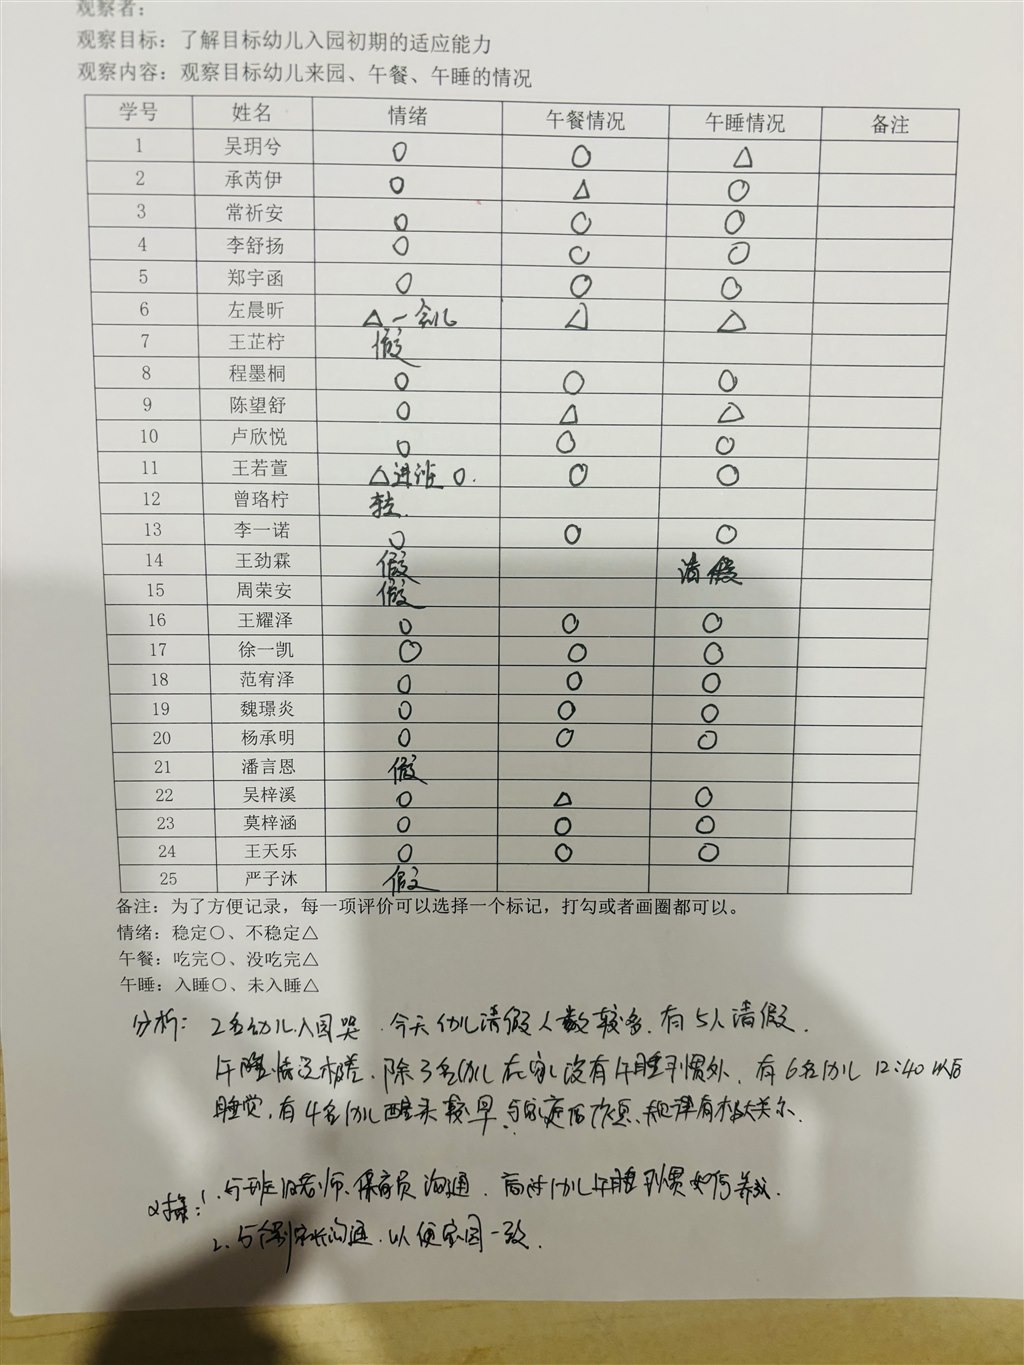 观察者：
观察目标：了解目标幼儿入园初期的适应能力
观察内容：观察目标幼儿来园、午餐、午睡的情况
学号 姓名 情绪 午餐情况 午睡情况 备注
1 吴玥兮 ○ ○ △
2 承芮伊 ○ △ ○
3 常祈安 ○ ○ ○
4 李舒扬 ○ ○ ○
5 郑宇函 ○ ○ ○
6 左晨昕 △一会儿 △ △
7 王芷柠 假
8 程墨桐 ○ ○ ○
9 陈望舒 ○ △ △
10 卢欣悦 ○ ○ ○
11 王若萱 △进班 ○. ○ ○
12 曾珞柠
13 李一诺 ○ ○ ○
14 王劲霖 假 请假
15 周荣安 假
16 王耀泽 ○ ○ ○
17 徐一凯 ○ ○ ○
18 范宥泽 ○ ○ ○
19 魏璟炎 ○ ○ ○
20 杨承明 ○ ○ ○
21 潘言恩 假
22 吴梓溪 ○ △ ○
23 莫梓涵 ○ ○ ○
24 王天乐 ○ ○ ○
25 严子沐 假
备注：为了方便记录，每一项评价可以选择一个标记，打勾或者画圈都可以。
情绪：稳定○、不稳定△
午餐：吃完○、没吃完△
午睡：入睡○、未入睡△
分析：2名幼儿入园哭．今天幼儿请假人数较多．有5人请假．
午睡情况．除3名幼儿在家没有午睡习惯外．有6名幼儿12:40以后
睡觉．有4名幼儿醒来较早．与家庭作息．规律有极大关系．
1．与班级老师．保育员沟通．商讨幼儿午睡习惯如何养成．
2．与个别家长沟通．以便家园一致．